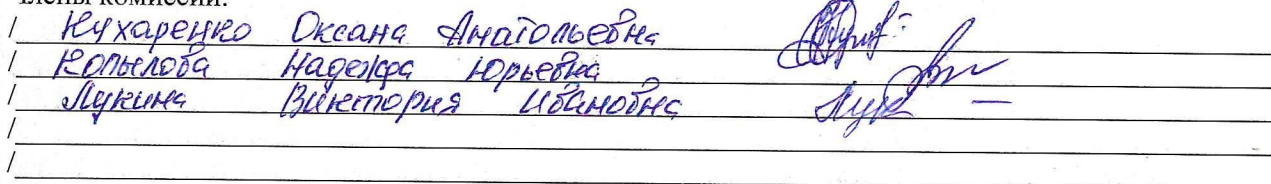 Члены комиссии:
/ Кухаренко Оксана Анатольевна
/ Копылова Надежда Юрьевна
/ Лукина Виктория Ивановна
/
/